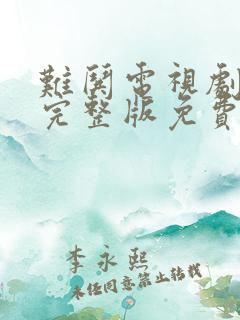 難鬨電視劇
完整版免費
李永熙
未经同意禁止转载